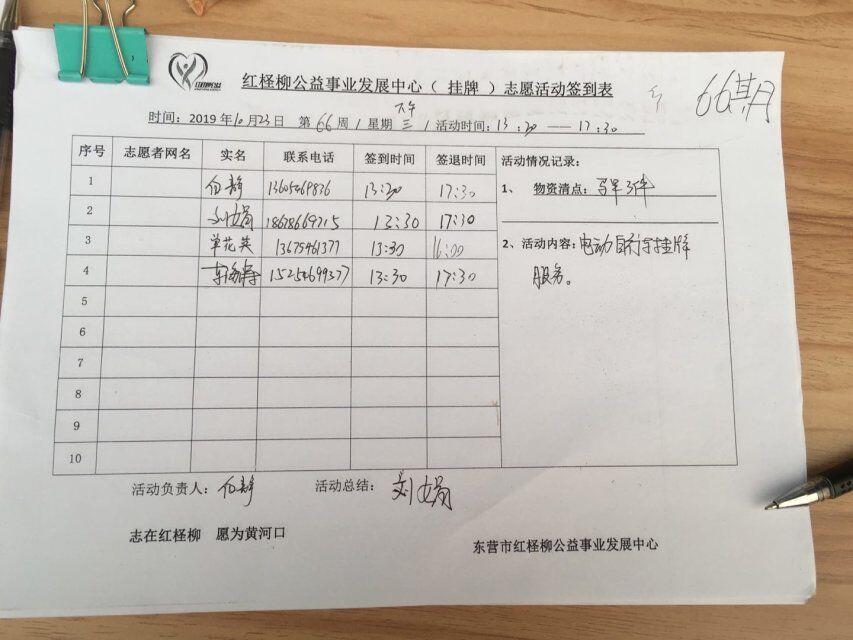 66期
红柽柳公益事业发展中心（ 挂牌 ）志愿活动签到表
下午
时间：2019 年10月23日 第 66 周 / 星期 三 / 活动时间：13：30 — 17：30
序号 志愿者网名 实名 联系电话 签到时间 签退时间
1 白静 13:30 17:30
2 刘娟 18678669715 13:30 17:30
3 单花英 13675461377 13:30 16:00
4 15254699377 13:30 17:30
5
6
7
8
9
10
活动情况记录：
1、 物资清点：马甲3件
2、活动内容：电动自行车挂牌
服务。
活动负责人：白静 活动总结：刘娟
志在红柽柳 愿为黄河口
东营市红柽柳公益事业发展中心